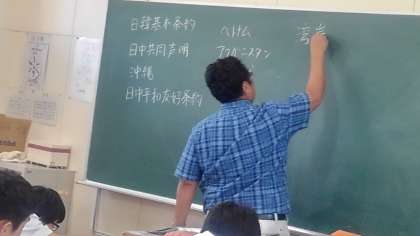 日韓基本条約
日中共同声明
沖縄
日中平和友好条約
ベトナム
アフガニスタン
湾岸